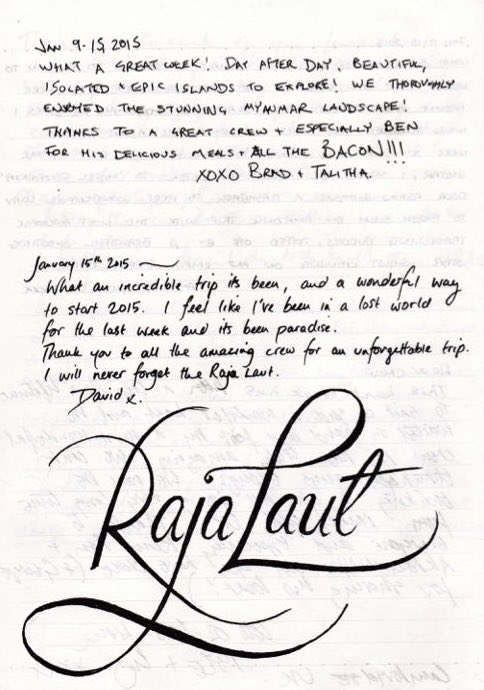 JAN 9-15, 2015
WHAT A GREAT WEEK! DAY AFTER DAY, BEAUTIFUL,
ISOLATED + EPIC ISLANDS TO EXPLORE! WE THOROUGHLY
ENJOYED THE STUNNING MYANMAR LANDSCAPE!
THANKS TO A GREAT CREW + ESPECIALLY BEN
FOR HIS DELICIOUS MEALS + ALL THE BACON!!!
XOXO BRAD + TALITHA.
January 15th 2015
What an incredible trip its been, and a wonderful way
to start 2015. I feel like I've been in a lost world
for the last week and its been paradise.
Thank you to all the amazing crew for an unforgettable trip.
I will never forget the Raja Laut.
David x.
Raja Laut